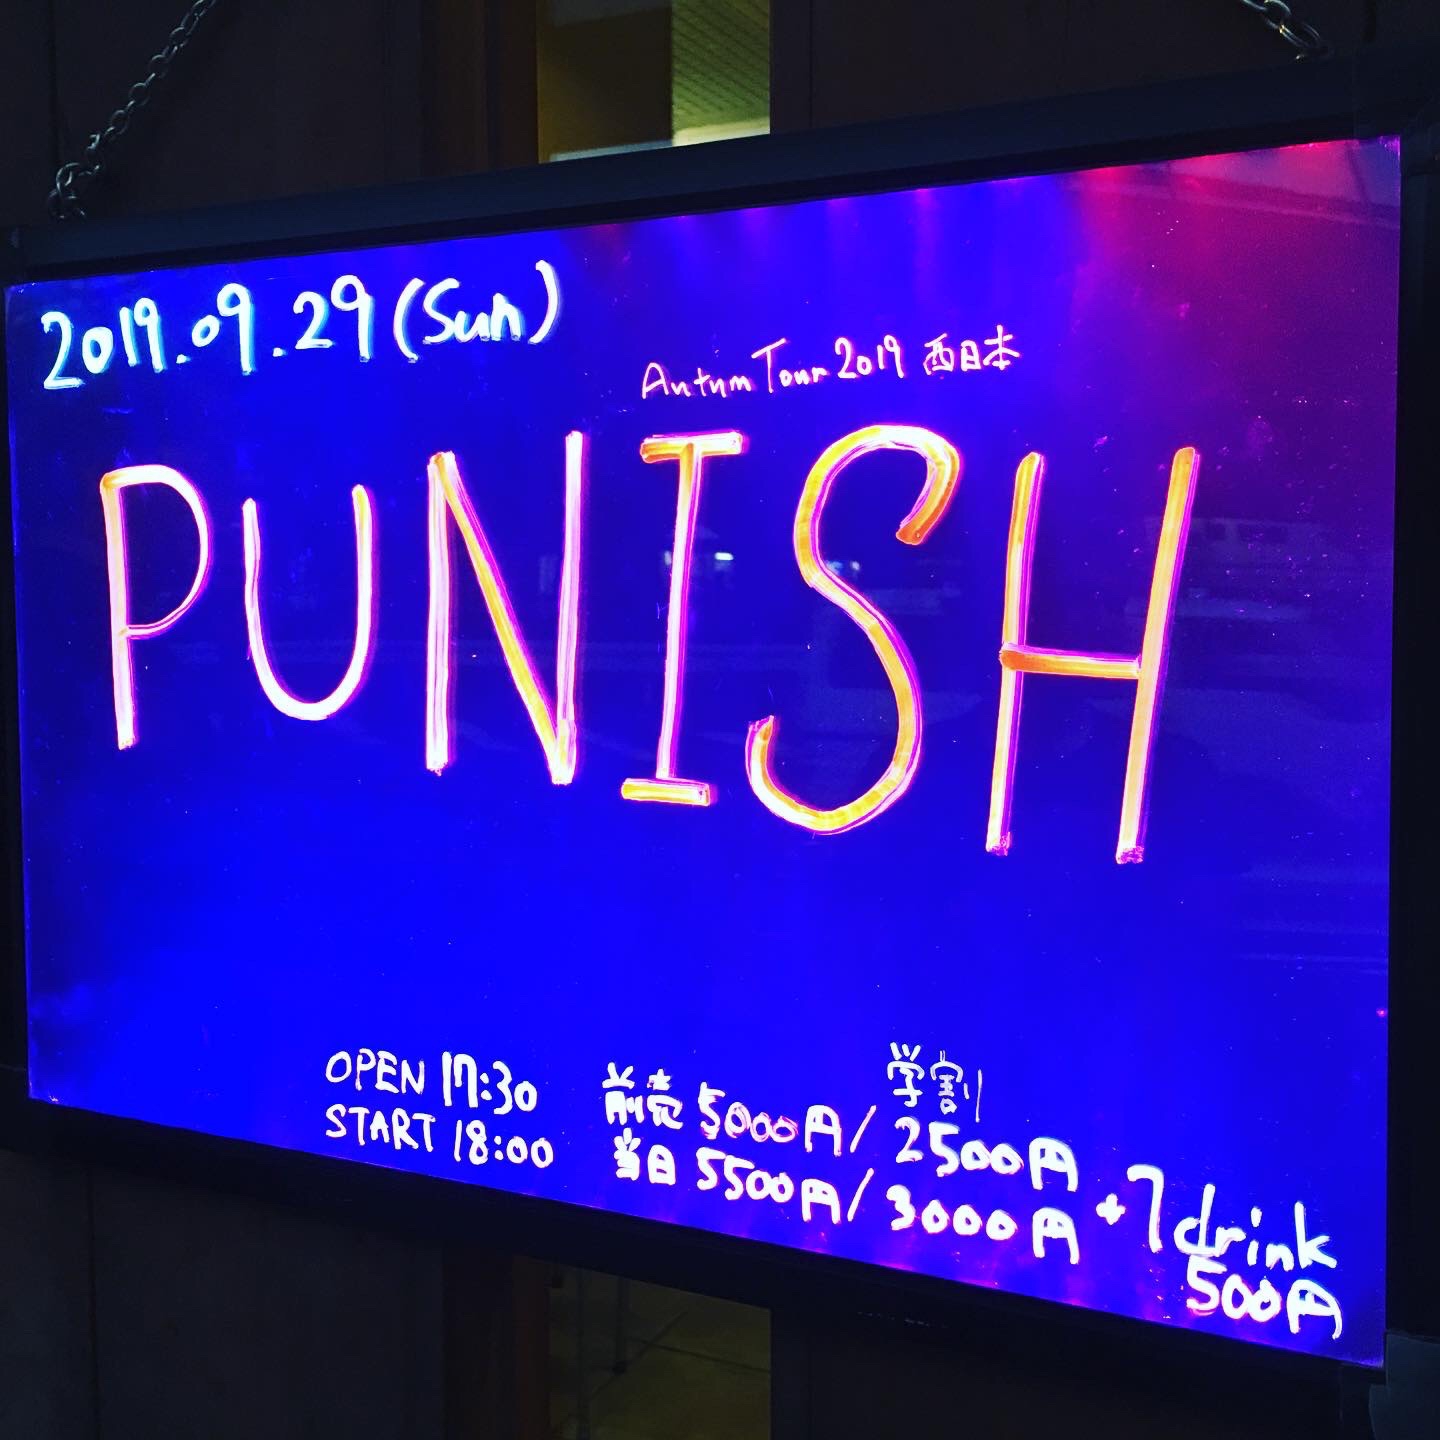 2019.09.29(Sun)
Autum Tour 2019 西日本
PUNISH
OPEN 17:30
START 18:00
学割
前売 5000円/2500円
当日 5500円/3000円
+1drink
500円